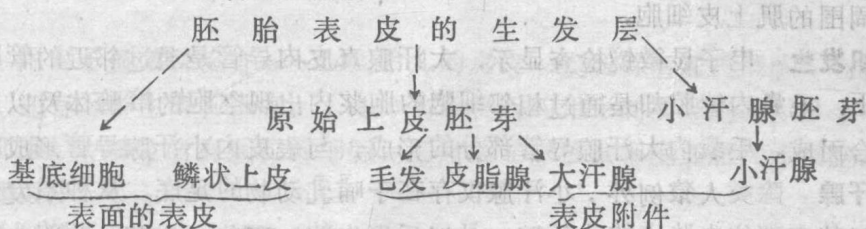 胚胎表皮的生发层
原始上皮胚芽 小汗腺胚芽
基底细胞 鳞状上皮 毛发 皮脂腺 大汗腺 小汗腺
表面的表皮 表皮附件